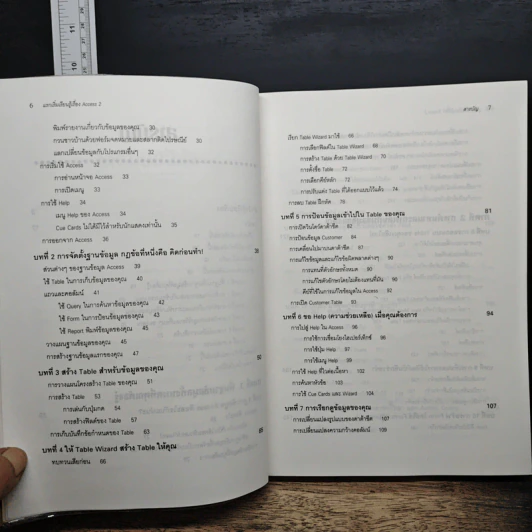 6 แลกเริ่มเรียนรู้เรื่อง Access 2
พิมพ์รายงานเกี่ยวกับข้อมูลของคุณ 30
แลกเปลี่ยนข้อมูลกับโปรแกรมอื่นๆ 32
การเริ่มใช้ Access 32
การอ่านหน้าจอ Access 33
การเปิดเมนู 33
การใช้ Help 34
เมนู Help ของ Access 34
Cue Cards ไม่ได้มีไว้สำหรับนักแสดงเท่านั้น 35
การออกจาก Access 35
บทที่ 2 การจัดตั้งฐานข้อมูล กฎข้อที่หนึ่งคือ คิดก่อนทำ!
ส่วนต่างๆ ของฐานข้อมูล Access 39
ใช้ Table ในการเก็บข้อมูลของคุณ 40
แถวและคอลัมน์ 41
ใช้ Query ในการค้นหาข้อมูลของคุณ 42
ใช้ Form ในการป้อนข้อมูลของคุณ 44
ใช้ Report พิมพ์ข้อมูลของคุณ 45
วางแผนฐานข้อมูลของคุณ 45
การสร้างฐานข้อมูลแรกของคุณ 47
บทที่ 3 สร้าง Table สำหรับข้อมูลของคุณ 50
การวางแผนโครงสร้าง Table ของคุณ 51
การสร้าง Table 53
การเล่นกับปุ่มกด 54
การสร้างฟิลด์ของ Table 57
การเก็บบันทึกข้อกำหนดของ Table 63
บทที่ 4 ให้ Table Wizard สร้าง Table ให้คุณ 65
ทบทวนเสียก่อน 66
สารบัญ 7
เรียก Table Wizard มาใช้ 66
การเลือกฟิลด์ใน Table Wizard
การสร้าง Table ด้วย Table Wizard 70
การตั้งชื่อ Table
การเลือกคีย์หลัก
การปรับแต่ง Table ที่ได้ออกแบบไว้แล้ว
การพบ Table อีกหัด
บทที่ 5 การป้อนข้อมูลเข้าไปใน Table ของคุณ 81
การเปิดในวิวดาต้าชีต
การป้อนข้อมูล Customer 84
การเคลื่อนไปมาบนดาต้าชีต
การแก้ไขข้อมูลและแก้ไขข้อผิดพลาดต่างๆ
การแทนที่ตัวอักษรทั้งหมด 90
การแก้ไขตัวอักษรโดยไม่ต้องแทนที่มัน
คีย์ที่ใช้ในการแก้ไขข้อมูลใน Access
การเปิด Customer Table 93
บทที่ 6 ขอ Help (ความช่วยเหลือ) เมื่อคุณต้องการ 94
การไปสู่ Help ใน Access 96
การใช้การเชื่อมโยงไฮเปอร์เท็กซ์
การใช้ปุ่ม Help 96
การใช้เมนู Help 97
การใช้ Help ที่ไวต่อเนื้อหา 102
การค้นหาหัวข้อ
การใช้ Cue Cards และ Wizard 104
บทที่ 7 การเรียกดูข้อมูลของคุณ 107
การเปลี่ยนแปลงรูปแบบของดาต้าชีต 108
การเปลี่ยนแปลงความกว้างคอลัมน์ 109